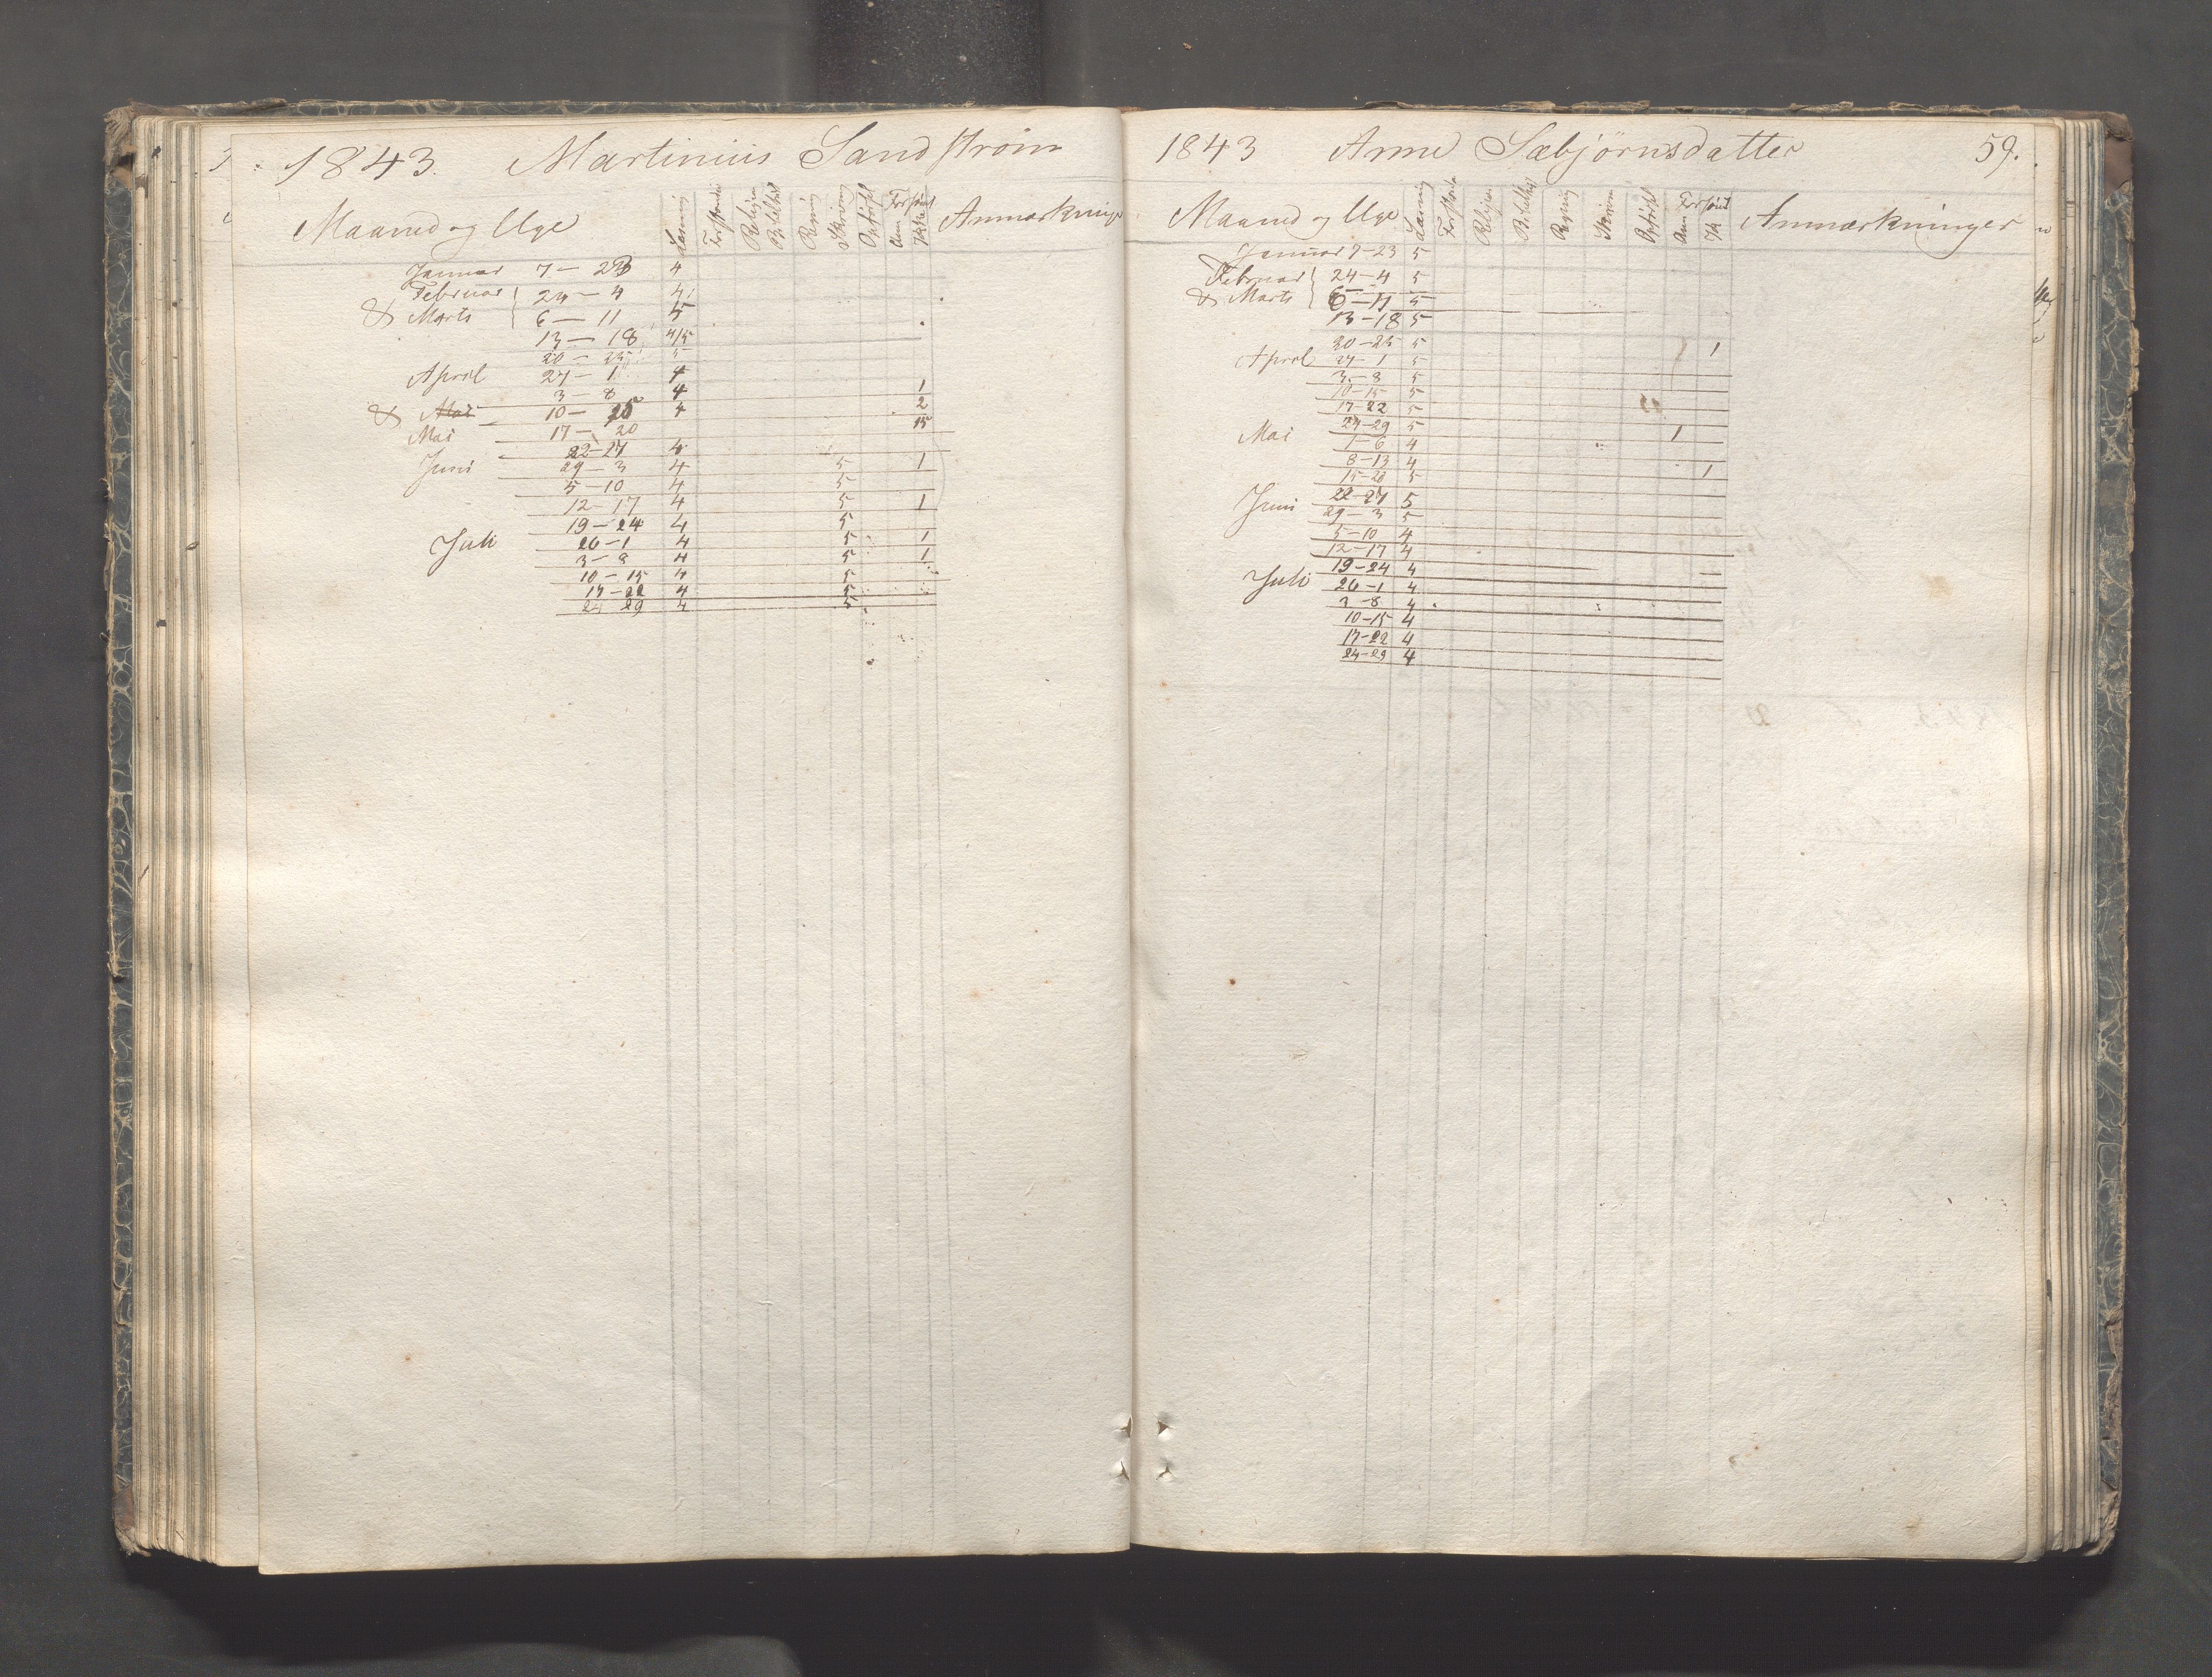 1843. Martinius Sandstrøm
Maaned og Uge Læsning Forstand Religion Bibelhist Regning Skrivning Opførsel Forsømt Anm Ikke Anmærkninger
Januar 7 — 23 4
Februar 24 — 4 4
& Marts 6 — 11 5
13 — 18 4/5
20 — 25 5
April 27 — 1 4
3 — 8 4 1
& Mai 10 — 15 4 2
Mai 17 — 20 15
22-27 4
Juni 29 — 3 4 5 1
5 — 10 4 5
12 — 17 4 5 1
19 — 24 4 5
Juli 26 — 1 4 5 1
3 — 8 4 5 1
10 — 15 4 5
17 — 22 4 5
24 29 4 5
1843 Anne Sæbjørnsdatter 59.
Maaned og Uge Læsning Forstand Religion Bibelhist Regning Skrivn Opførsel Forsømt Anm Ik Anmærkninger
Januar 7-23 5
Februar 24-4 5
& Marts 6-11 5
13-18 5
20-25 5 1
April 27-1 5
3-8 5
10-15 5
17-22 5
24-29 5 1
Mai 1-6 4
8-13 4 1
15-20 5
22-27 5
Juni 29-3 5
5-10 4
12-17 4
19-24 4
Juli 26-1 4
3-8 4
10-15 4
17-22 4
24-29 4